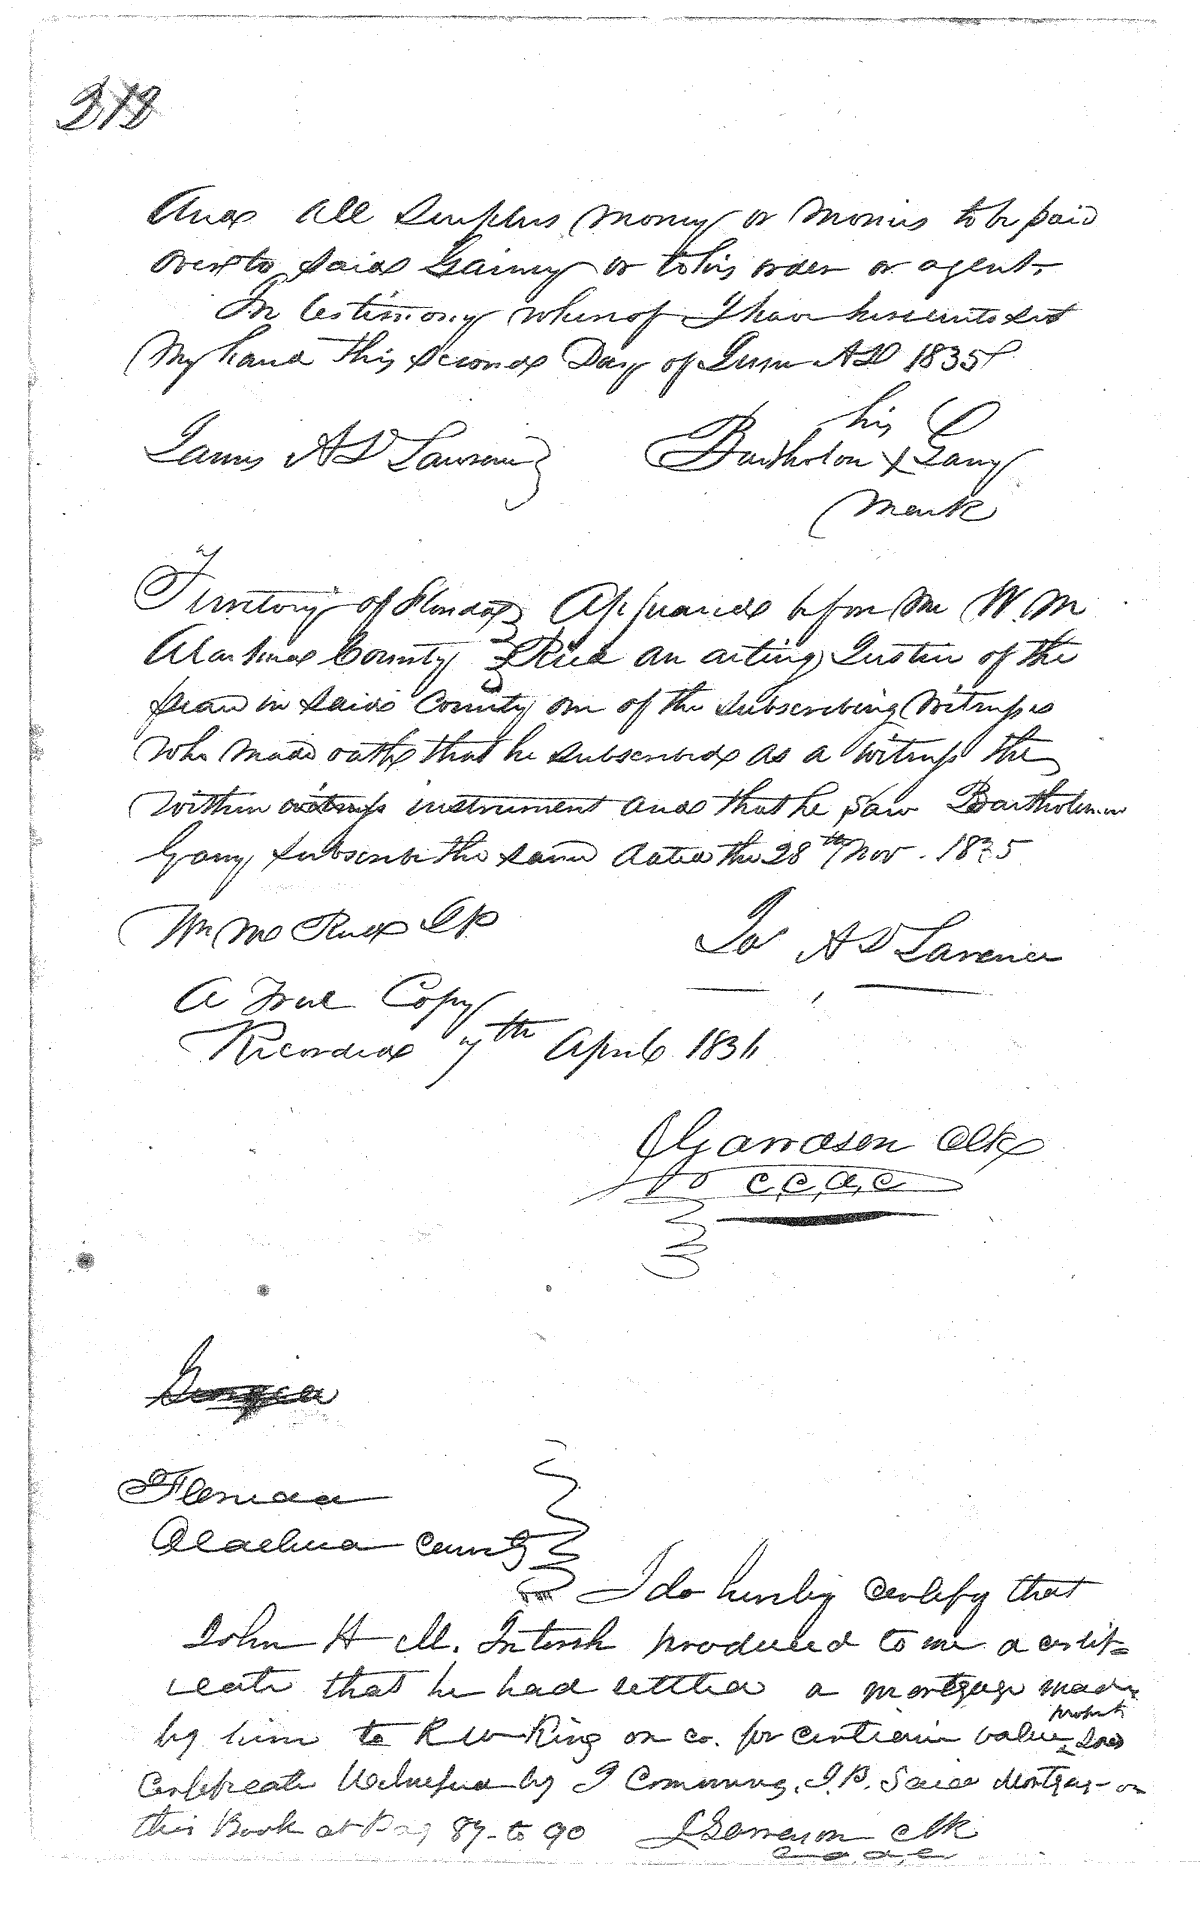 212
And all Surplus money or monies to be paid
over to said Gainey or to his order or agent.
In testimony whereof I have hereunto set
My hand this second Day of June AD 1835
his
James A D Lawrence Bartholom x Gany
mark
Territory of Florida Appeared before me W. M
Alachua County Reed an acting Justice of the
peace in said County one of the subscribing witnesses
who made oath that he subscribed as a witness the
within witness instrument and that he saw Bartholomew
Gany subscribe the same dated the 28th Nov. 1835
Wm Mc Reed JP Jas A D Larence
A True Copy
Recorded 7th April 1836
J Garrason Clk
C, C, A, C
Georgia
Florida
Alachua County
I do hereby certify that
John H M. Intosh produced to me a certif=
icate that he had settled a mortgage made
by him to R W King on co. for certain value
Certificate Witnessed by J Cummings, J. P. Said Mortgage on
this Book at Pag 87 to 90 J Garrason clk
c, c, a, c